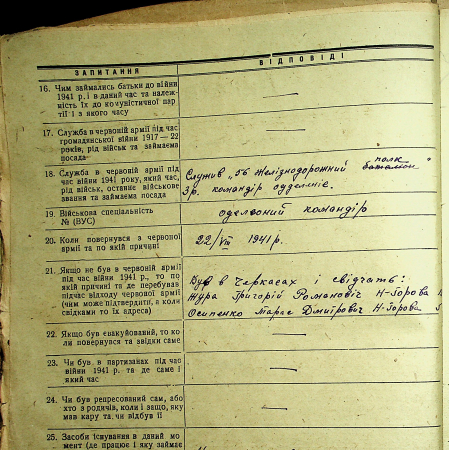 ЗАПИТАННЯ
ВІДПОВІДІ
16. Чим займались батьки до війни
1941 р. і в даний час та належ-
ність їх до комуністичної пар-
тії і з якого часу
—
17. Служба в червоній армії під час
громадянської війни 1917—22
років, рід військ та займаєма
посада
—
18. Служба в червоній армії під
час війни 1941 року, який час,
рід військ, останнє військове
звання та займаєма посада
полк
Служив "56 Железнодорожний батальон"
командір отделеніє.
19. Військова спеціальність
№ (ВУС)
командір
20. Коли повернувся з червоної
армії та по якій причині
22/VIII 1941 р.
21. Якщо не був в червоній армії
під час війни 1941 р., то по
якій причині та де перебував
під час відходу червоної армії
(чим може підтвердити, а коли
свідками то їх адреса)
Був в Черкасах і свідчать:
Жура Григорій Романович Н-Горова
Осипенко Дмитрович Н-Горова
22. Якщо був евакуйований, то ко-
ли повернувся та звідки саме
—
23. Чи був в партизанах під час
війни 1941 р. та де саме і
який час
—
24. Чи був репресований сам, або
хто з родичів, коли і защо, яку
мав кару та чи відбув її
—
25. Засоби існування в даний мо-
мент (де працює і яку займає